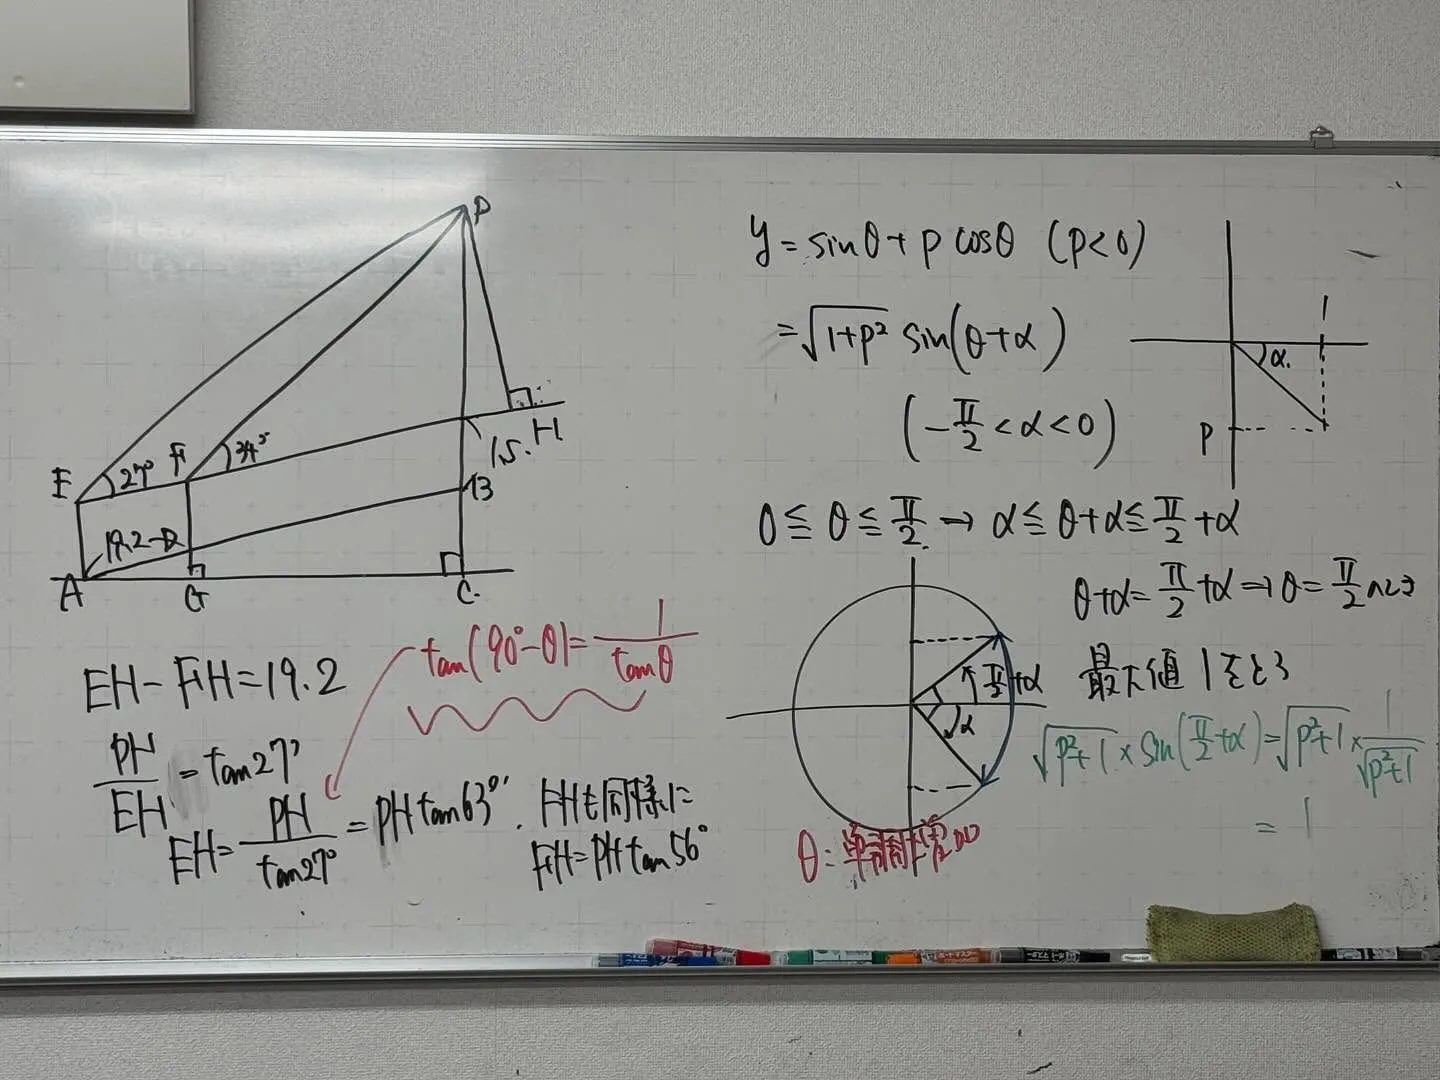 P
E
27°
F
34°
1.5
H
19.2-D
B
A
G
C
EH-FH=19.2
tan(90°-θ)=1/tanθ
PH/EH=tan27°
EH=PH/tan27°=PH tan63°. FHも同様に
FH=PH tan56°
y=sinθ+p cosθ (p<0)
=√(1+p²) sin(θ+α)
(-π/2<α<0)
1
α
P
0≦θ≦π/2→α≦θ+α≦π/2+α
θ+α=π/2+α⇒θ=π/2のとき
最大値1をとる
π/2+α
α
√(p²+1)×sin(π/2+α)=√(p²+1)×1/√(p²+1)
=1
θ:単調増加